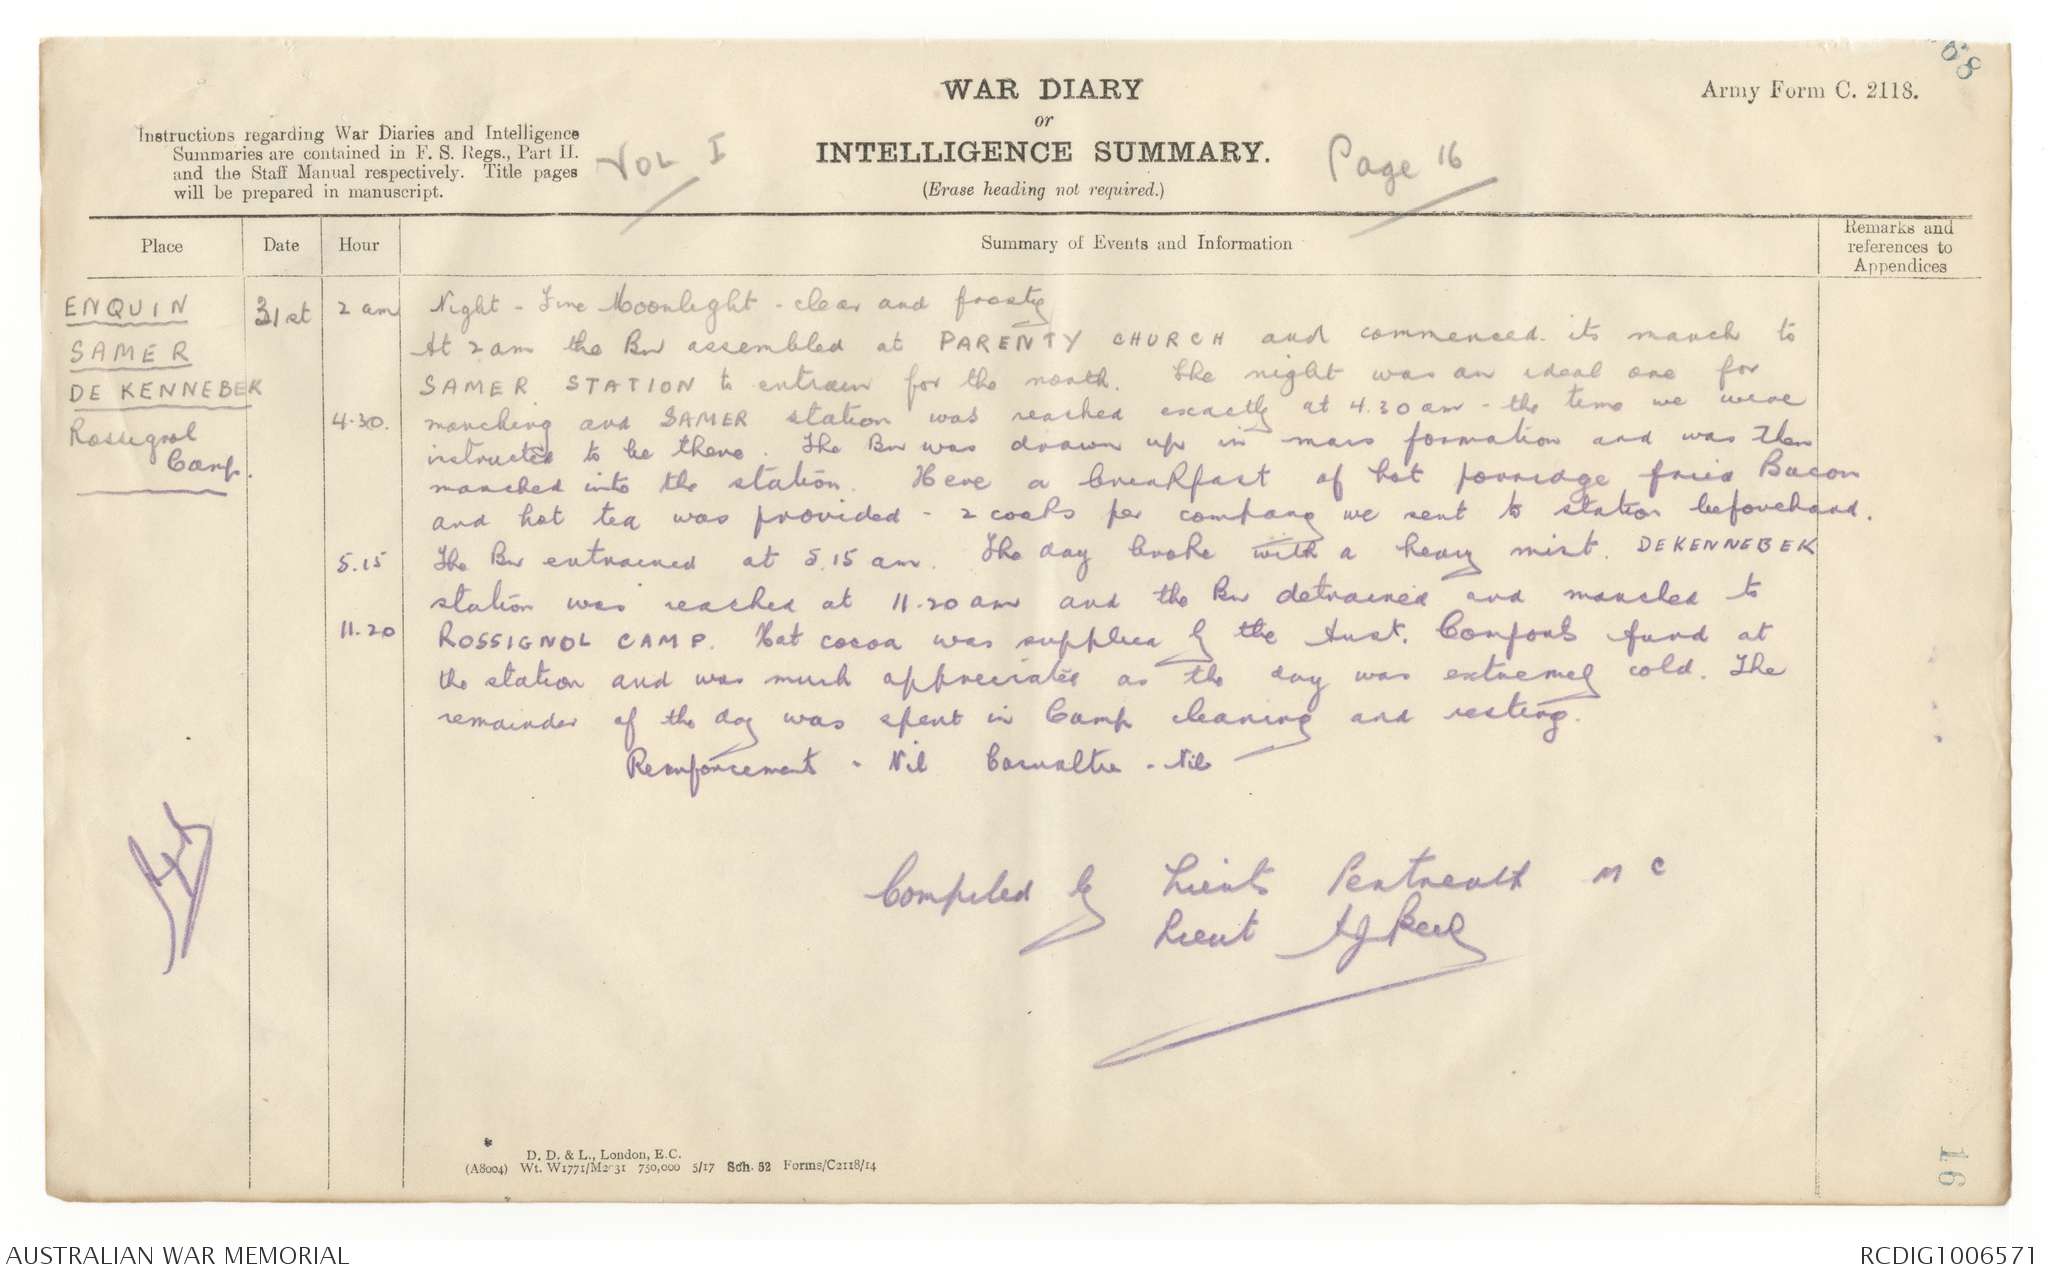 68
WAR DIARY
or
INTELLIGENCE SUMMARY.
(Erase heading not required.)
Army Form C. 2118.
Instructions regarding War Diaries and Intelligence
Summaries are contained in F. S. Regs., Part II.
and the Staff Manual respectively. Title pages
will be prepared in manuscript.
VOL I
Page 16
Place Date Hour Summary of Events and Information Remarks and references to Appendices
ENQUIN 31st 2 am Night - Fine Moonlight - clear and frosty
SAMER At 2 am the Bn assembled at PARENTY CHURCH and commenced its march to
DE KENNEBEK SAMER STATION to entrain for the north. The night was an ideal one for
Rossignol 4.30. marching and SAMER station was reached exactly at 4.30 am - the time we were
Camp. instructed to be there. The Bn was drawn up in mass formation and was then
marched into the station. Here a breakfast of hot porridge fried Bacon
and hot tea was provided - 2 cooks per company we sent to station beforehand.
5.15 The Bn entrained at 5.15 am. The day broke with a heavy mist. DEKENNEBEK
station was reached at 11.20 am and the Bn detrained and marched to
11.20 ROSSIGNOL CAMP. Hot cocoa was supplied by the Aust. Comforts fund at
the station and was much appreciated as the day was extremely cold. The
remainder of the day was spent in Camp cleaning and resting.
Reinforcements - Nil Casualties - Nil
Compiled by Lieuts Pentreath M C
Lieut
D. D. & L., London, E.C.
(A8004) Wt. W1771/M2031 750,000 5/17 Sch. 52 Forms/C2118/14
16
AUSTRALIAN WAR MEMORIAL
RCDIG1006571